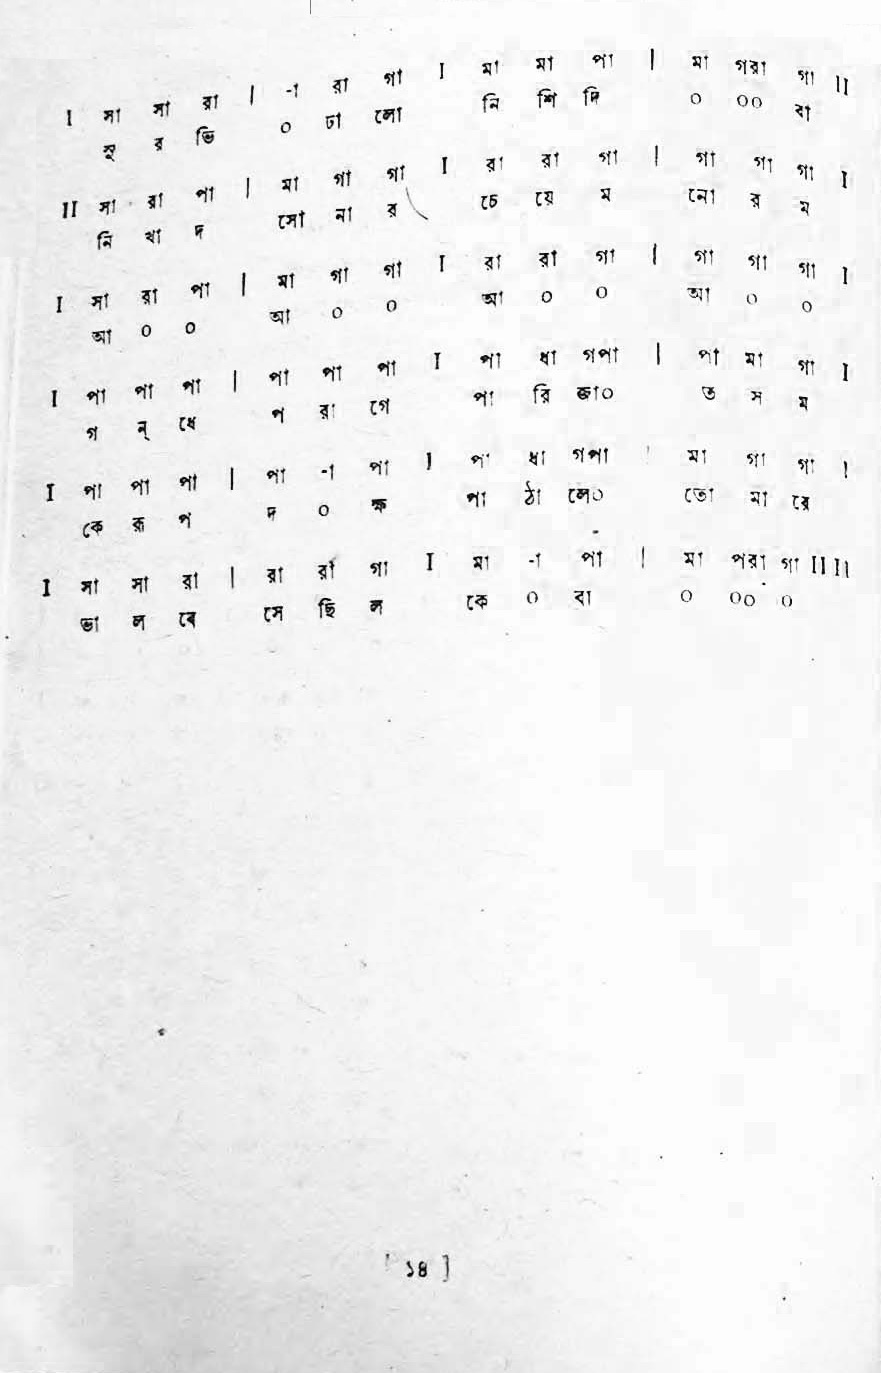 I সা সা রা | -া রা গা I মা মা পা | মা গরা গা II
সু র ভি ০ ঢা লো নি শি দি ০ ০০ বা
II সা রা পা | মা গা গা I রা রা গা | গা গা গা I
নি খা দ সো না র চে য়ে ম নো র ম
I সা রা পা | মা গা গা I রা রা গা | গা গা গা I
আ ০ ০ আ ০ ০ আ ০ ০ আ ০ ০
I পা পা পা | পা পা পা I পা ধা গপা | পা মা গা I
গ ন্ ধে প রা গে পা রি জা০ ত স ম
I পা পা পা | পা -া পা I পা ধা গপা | মা গা গা I
কে রূ প দ ০ ক্ষ পা ঠা লে০ তো মা রে
I সা সা রা | রা রা গা I মা -া পা | মা পরা গা II II
ভা ল বে সে ছি ল কে ০ বা ০ ০০ ০
[ ১৪ ]